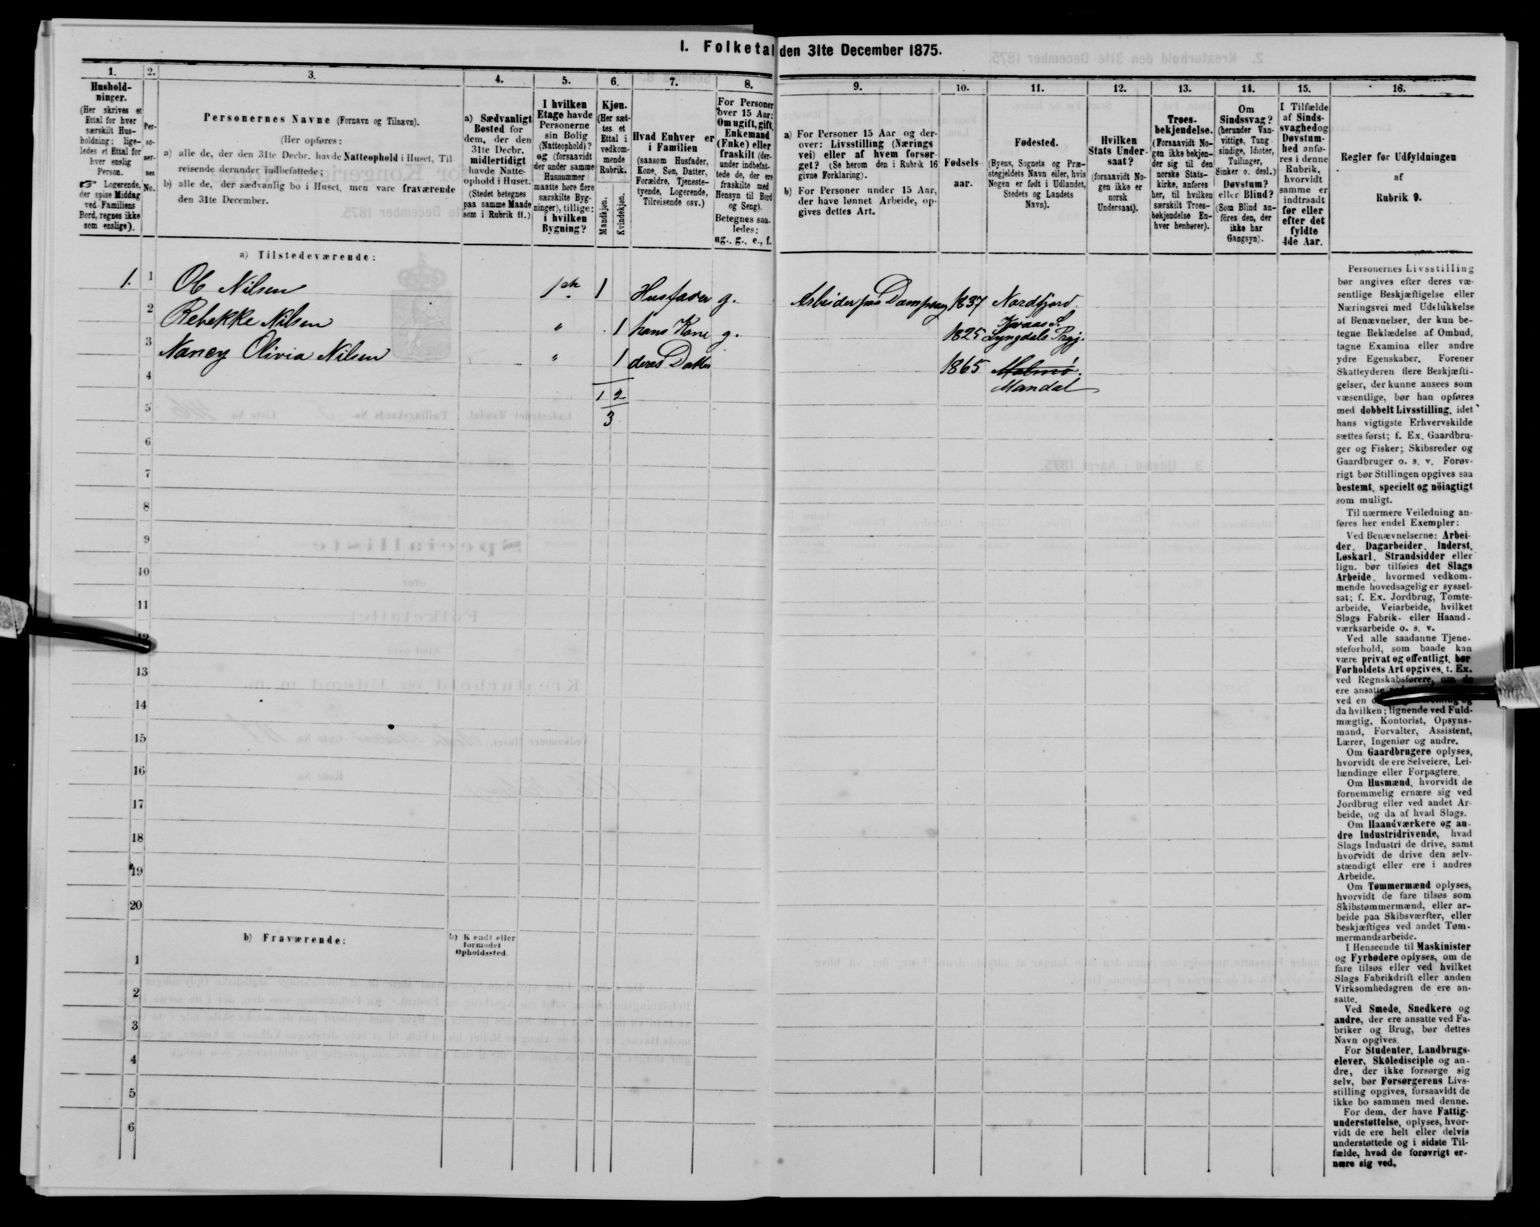 I. Folketal den 31te December 1875.
1.
Hushold-
ninger.
(Her skrives et
Ettal for hver
særskilt Hus-
holdning; lige-
ledes et Ettal for
hver enslig
Person.
☞ Logerende,
der spise Middag
ved Familiens
Bord, regnes ikke
som enslige).
2.
Per-
so-
ner-
nes
No.
3.
Personernes Navne (Fornavn og Tilnavn).
(Her opføres:
a) alle de, der den 31te Decbr. havde Natteophold i Huset, Til
reisende derunder indbefattede;
b) alle de, der sædvanlig bo i Huset, men vare fraværende
den 31te December.
4.
a) Sædvanligt
Bosted for
dem, der den
31te Decbr.
midlertidigt
havde Natte-
ophold i Huset.
(Stedet betegnes
paa samme Maade
som i Rubrik 11.)
5.
I hvilken
Etage havde
Personerne
sin Bolig
(Natteophold)?
og (forsaavidt
der under samme
Husnummer
maatte høre flere
særskilte Byg-
ninger), tillige:
i hvilken
Bygning?
6.
Kjøn.
(Her sæt-
tes. et
Ettal i
vedkom-
mende
Rubrik.
Mandkjøn.
Kvindekjøn.
7.
Hvad Enhver er
i Familien
(saasom Husfader,
Kone, Søn, Datter,
Forældre, Tjeneste-
tyende, Logerende,
Tilreisende osv.)
8.
For Personer
over 15 Aar:
Om ugift, gift,
Enkemand
(Enke) eller
fraskilt (der-
under indbefat-
tede de, der ere
fraskilte med
Hensyn til Bord
og Seng).
Betegnes saa-
ledes:
ug., g., e., f.
9.
a) For Personer 15 Aar og der-
over: Livsstilling (Nærings
vei) eller af hvem forsør-
get? (Se herom den i Rubrik 16
givne Forklaring).
b) For Personer under 15 Aar,
der have lønnet Arbeide, op-
gives dettes Art.
10.
Fødsels-
aar.
11.
Fødested.
(Byens, Sognets og Præ-
stegjeldets Navn eller, hvis
Nogen er født i Udlandet,
Stedets og Landets
Navn).
12.
Hvilken
Stats Under-
saat?
(forsaavidt No-
gen ikke er
norsk
Undersaat).
13.
Troes-
bekjendelse.
(Forsaavidt No-
gen ikke bekjen-
der sig til den
norske Stats-
kirke, anføres
her, til hvilken
særskilt Troes-
bekjendelse En-
hver henhører).
14.
Om
Sindssvag?
(herunder Van-
vittige, Tung
sindige, Idioter,
Tullinger,
Sinker o. desl.)
Døvstum?
eller Blind?
(Som Blind an-
føres den, der
ikke har
Gangsyn).
15.
I Tilfælde
af Sinds-
svaghed og
Døvstum-
hed anfø-
res i denne
Rubrik,
hvorvidt
samme er
indtraadt
før eller
efter det
fyldte
4de Aar.
16.
Regler for Udfyldningen
af
Rubrik 9.
a) Tilstedeværende:
1. 1 Ole Nilsen 1ste 1 Husfader g. Arbeider paa Dampsag 1837 Nordfjord.
2 Rebekke Nilsen " 1 hans Kone g. 1825 Kvaas S. Lyngdals Prgj.
3 Nancy Olivia Nilsen " 1 deres Datter 1865 Malmø. Mandal
4
1 2
5
3
6
7
8
9
10
11
12
13
14
15
16
17
18
19
20
b) Fraværende:
b) Kjendt eller
formodet
Opholdssted.
1
2
3
4
5
6
Personernes Livsstilling
bør angives efter deres væ-
sentlige Beskjæftigelse eller
Næringsvei med Udelukkelse
af Benævnelser, der kun be-
tegne Beklædelse af Ombud,
tagne Examina eller andre
ydre Egenskaber. Forener
Skatteyderen flere Beskjæfti-
gelser, der kunne ansees som
væsentlige, bør han opføres
med dobbelt Livsstilling, idet
hans vigtigste Erhvervskilde
sættes først; f. Ex. Gaardbru-
ger og Fisker; Skibsreder og
Gaardbruger o. s. v. Forøv-
rigt bør Stillingen opgives saa
bestemt, specielt og nöiagtigt
som muligt.
Til nærmere Veiledning an-
føres her endel Exempler:
Ved Benævnelserne: Arbei-
der, Dagarbeider, Inderst,
Løskarl, Strandsidder eller
lign. bør tilføies det Slags
Arbeide, hvormed vedkom-
mende hovedsagelig er syssel-
sat; f. Ex. Jordbrug, Tomte-
arbeide, Veiarbeide, hvilket
Slags Fabrik- eller Haand-
værksarbeide o. s. v.
Ved alle saadanne Tjene-
steforhold, som baade kan
være privat og offentligt, bør
Forholdets Art opgives, t. Ex.
ved Regnskabsførere, om de
ere ansatte
ved en
da hvilken; lignende ved Fuld-
mægtig, Kontorist, Opsyns-
mand, Forvalter, Assistent,
Lærer, Ingeniør og andre.
Om Gaardbrugere oplyses,
hvorvidt de ere Selveiere, Lei-
lændinge eller Forpagtere.
Om Husmænd, hvorvidt de
fornemmelig ernære sig ved
Jordbrug eller ved andet Ar-
beide, og da af hvad Slags.
Om Haandværkere og an-
dre Industridrivende, hvad
Slags Industri de drive, samt
hvorvidt de drive den selv-
stændigt eller ere i andres
Arbeide.
Om Tømmermænd oplyses,
hvorvidt de fare tilsøs som
Skibstømmermænd, eller ar-
beide paa Skibsværfter, eller
beskjæftiges ved andet Tøm-
mermandsarbeide.
I Henseende til Maskinister
og Fyrbødere oplyses, om de
fare tilsøs eller ved hvilket
Slags Fabrikdrift eller anden
Virksomhedsgren de ere an-
satte.
Ved Smede, Snedkere og
andre, der ere ansatte ved Fa-
briker og Brug, bør dettes
Navn opgives.
For Studenter, Landbrugs-
elever, Skoledisciple og an-
dre, der ikke forsørge sig
selv, bør Forsørgerens Livs-
stilling opgives, forsaavidt de
ikke bo sammen med denne.
For dem, der have Fattig-
understøttelse, oplyses, hvor-
vidt de ere helt eller delvis
understøttede og i sidste Til-
fælde, hvad de forøvrigt er-
nære sig ved.